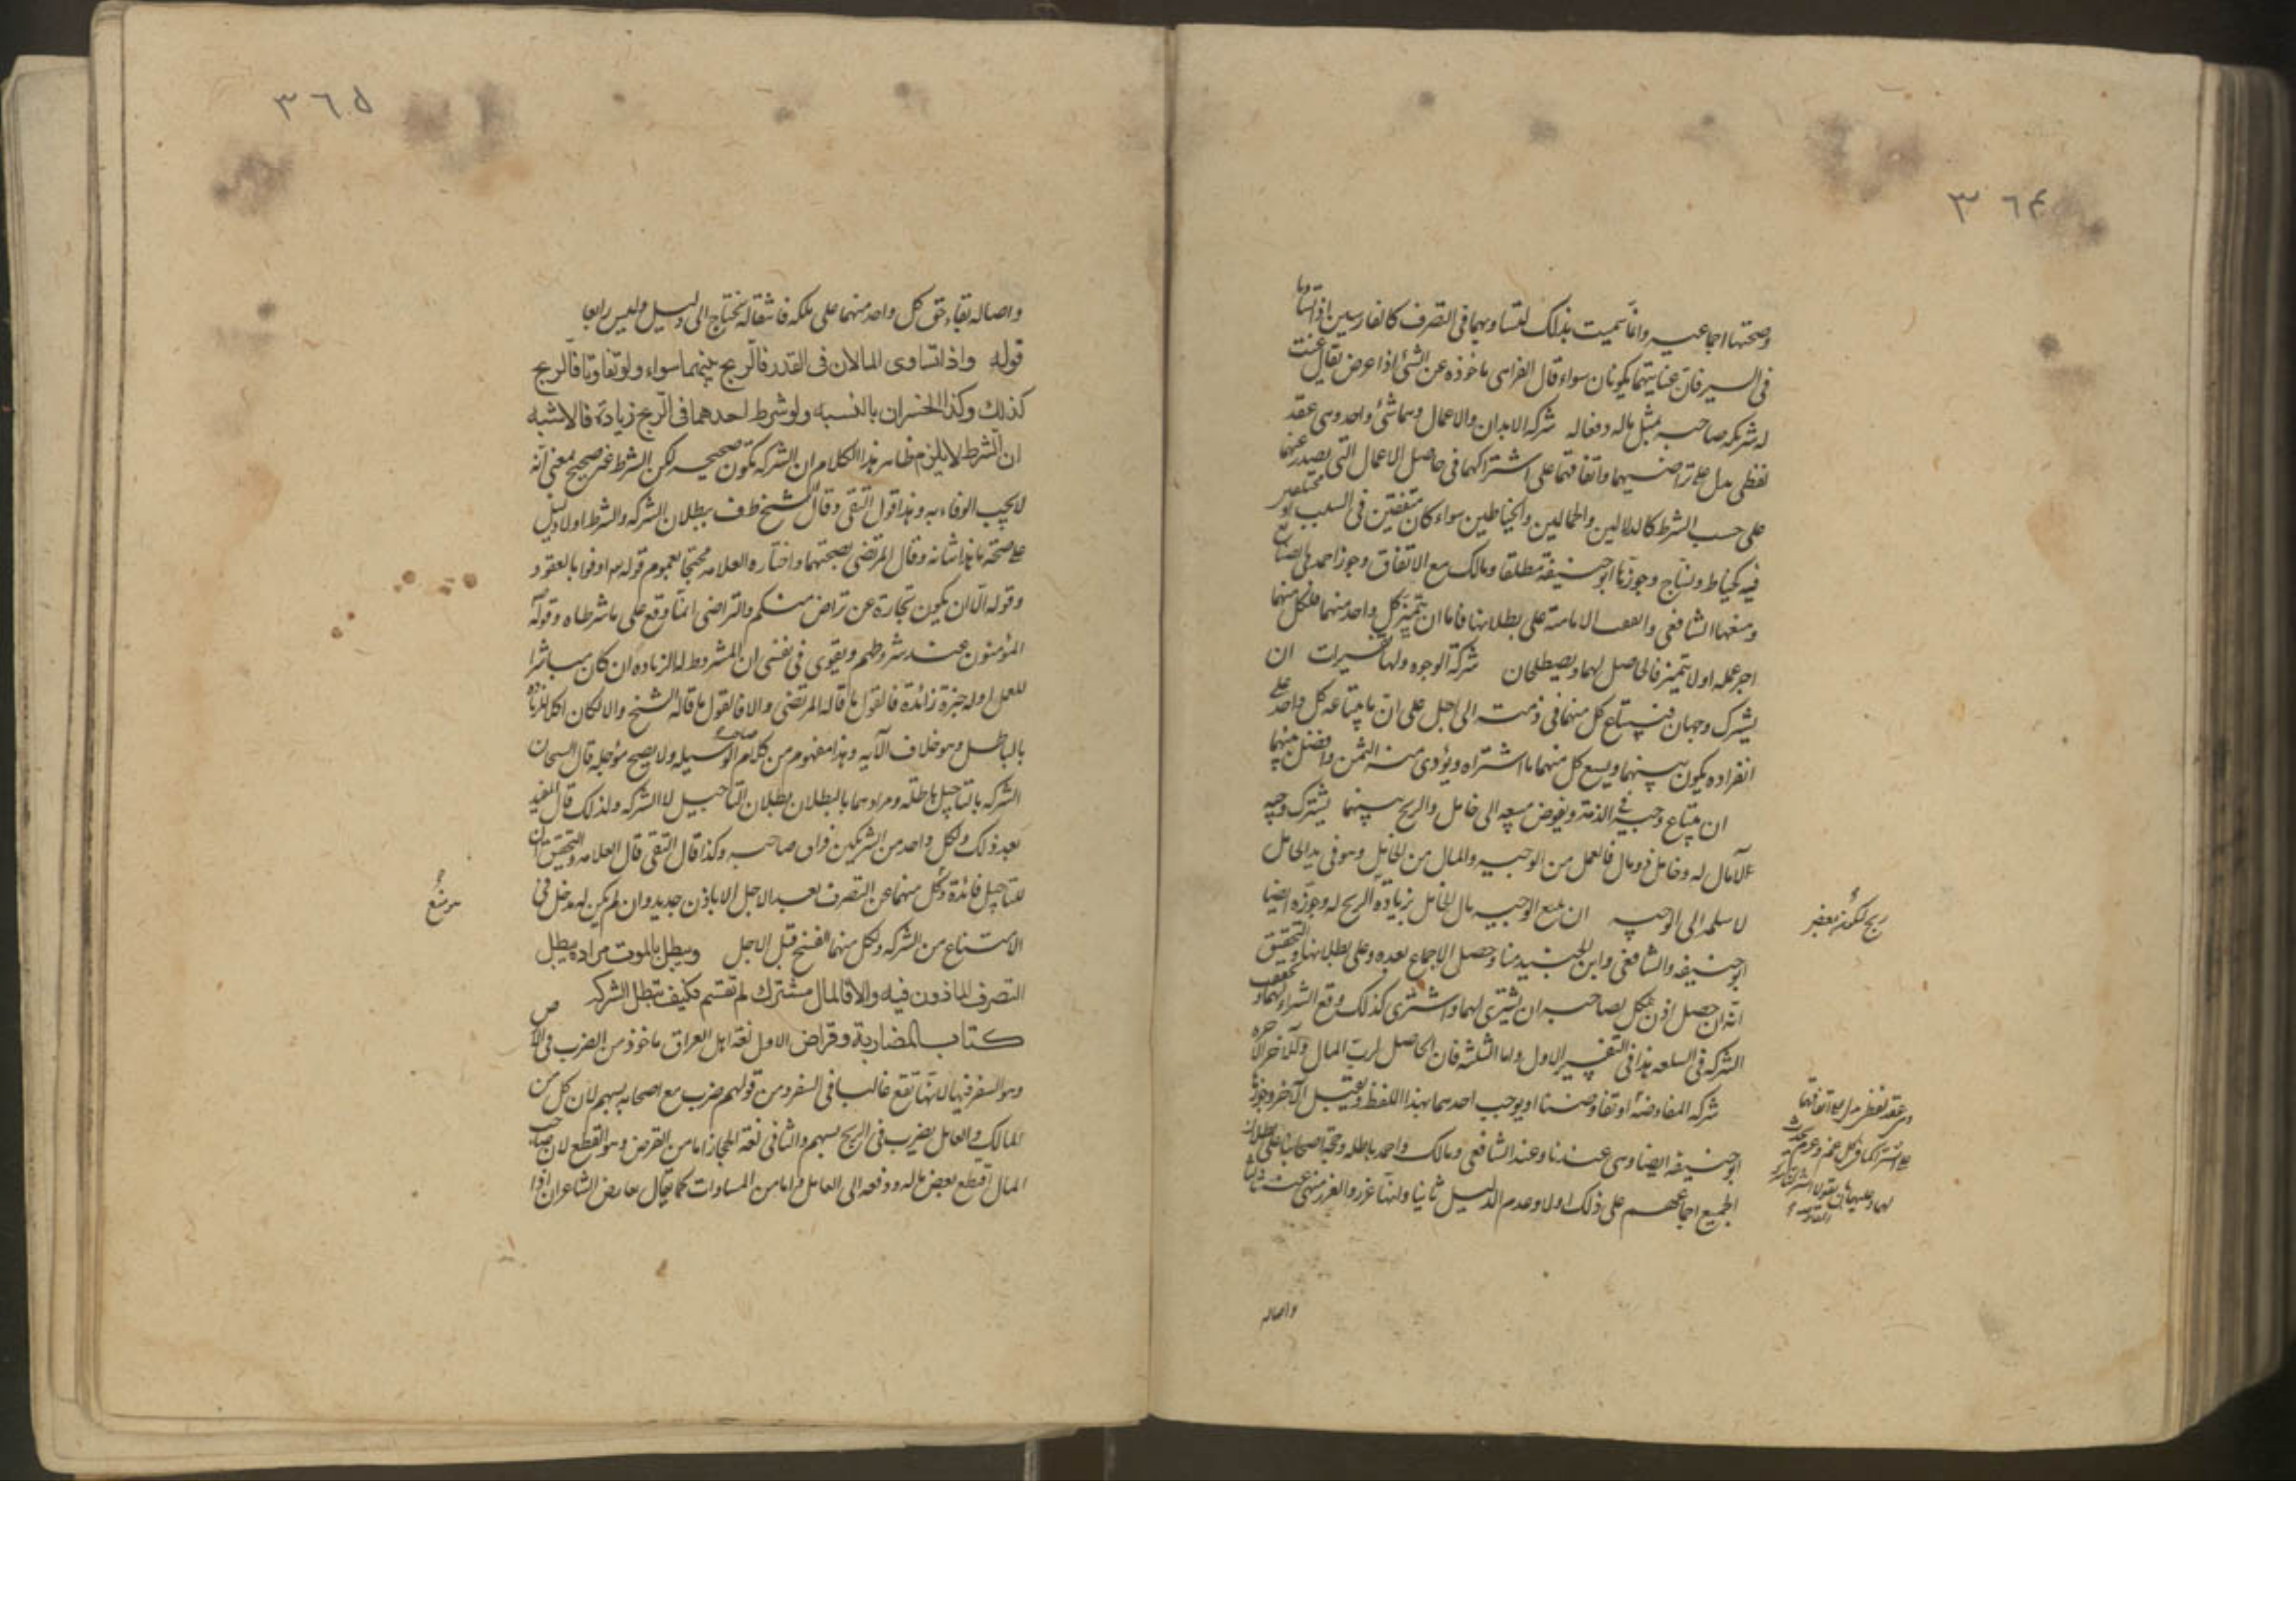 ٣٦٤
وصحتها اجماعيه وانما سميت بذلك لتساويهما فى التصرف كالفارسين اذا تساويا
فى السير فان عنانيهما يكونان سواء قال الفراء هى ماخوذه عن الشئ اذا عرض يقال عنت
له شركه صاحبه بمثل ماله وفعاله شركه الابدان والاعمال وهما شئ واحد وهى عقد
لفظى يدل على تراضيهما واتفاقهما على اشتراكهما فى حاصل الاعمال التى يصدر عنهما
على حسب الشرط كالدلالين والحمالين والخياطين سواء كان متفقين فى السبب او
فيه كخياط ونساج وجوزها ابو حنيفة مطلقا ومالك مع الاتفاق وجوز احمد فى الصنائع
ومنعها الشافعى والفقهاء الامامية على بطلانها فاما ان يتميز كل واحد منهما فلكل منهما
اجر عمله او لا يتميز فالحاصل لهما ويصطلحان شركة الوجوه ولها تفسيرات ان
يشترك وجهان فيبتاع كل منهما فى ذمته الى اجل على ان ما يبتاعه كل واحد على
انفراده يكون بينهما ويبيع كل منهما ما اشتراه ويؤدى منه الثمن وافضل بينهما
ان يبتاع وجيه فى الذمة ويفوض بيعه الى خامل والربح بينهما يشترك وجيه
لا مال له وخامل ذو مال فالعمل من الوجيه والمال من الخامل وهو فى يد الخامل
لا سلمه الى الوجيه ان يبيع الوجيه مال الخامل بزيادة الربح له وجوزه ايضا
ابو حنيفه والشافعى وابن الجنيد منا وحصل الاجماع بعده وعلى بطلانها والتحقيق
انه ان حصل اذن لكل لصاحبه ان يشترى لهما واشترى كذلك وقع الشراء لهما و
الشركه فى السلعه هذا فى التفسير الاول واما الثلثه فان الحاصل لرب المال وللآخر اجره
شركه المفاوضه او تفاوضنا او يوجب احدهما بهذا اللفظ ويقبل الآخر وجوزها
ابو حنيفه ايضا وهى عندنا وعند الشافعى ومالك واحمد باطله وحجة اصحابنا على بطلان
الجميع اجماعهم على ذلك اولا وعدم الدليل ثانيا ولانها غرر والغرر منهى عنه ثالثا
ربح لكونه بعض
واصاله
٣٦٥
واصاله بقاء حق كل واحد منهما على ملكه فانتقاله يحتاج الى دليل وليس رابعا
قوله واذا تساوى المالان فى القدر فالربح بينهما سواء ولو تفاوتا فالربح
كذلك وكذا الخسران بالنسبه ولو شرط لاحدهما فى الربح زيادة فالاشبه
ان الشرط لا يلزم ظاهر هذا الكلام ان الشركه تكون صحيحه لكن الشرط غير صحيح بمعنى انه
لا يجب الوفاء به وهذا قول التقى وقال الشيخ طف ببطلان الشركه والشرط اولا دليل
على صحة ما هذا شانه وقال المرتضى بصحتهما واختاره العلامه محتجا بعموم قوله تع اوفوا بالعقود
وقوله الا ان يكون تجارة عن تراض منكم والتراضى انما وقع على ما شرطاه وقوله
المؤمنون عند شروطهم ويقوى فى نفسى ان المشروط له الزيادة ان كان مباشرا
للعمل او له خبرة زائدة فالقول ما قاله المرتضى والا فالقول ما قاله الشيخ والا لكان اكل الزياده
بالباطل وهو خلاف الآيه وهذا مفهوم من كلام صاحب الوسيله ولا يصح مؤجله قال الشيخان
الشركه بالتاجيل باطله ومرادهما بالبطلان بطلان التاجيل لا الشركه ولذلك قال المفيد
بعد ذلك ولكل واحد من الشريكين فراق صاحبه وكذا قال التقى قال العلامه والتحقيق ان
للتاجيل فائدة وكل منهما عن التصرف بعد الاجل الا باذن جديد وان لم يكن له مدخل فى
الامتناع من الشركه ولكل منهما الفسخ قبل الاجل ويبطل بالموت مراده يبطل
التصرف الماذون فيه والا فالمال مشترك لم تقسم فكيف تبطل الشركه
كتاب المضاربة وقراض الاول لغة اهل العراق ماخوذ من الضرب فى الارض
وهو السفر فيها لانها تقع غالبا فى السفر ومن قولهم ضرب مع اصحابه بسهم لان كل من
المالك والعامل يضرب فى الربح بسهم والثانى لغة الحجاز اما من القرض وهو القطع لان صاحب
المال اقتطع بعض ماله ودفعه الى العامل واما من المساوات كما يقال تقارض الشاعران اذا